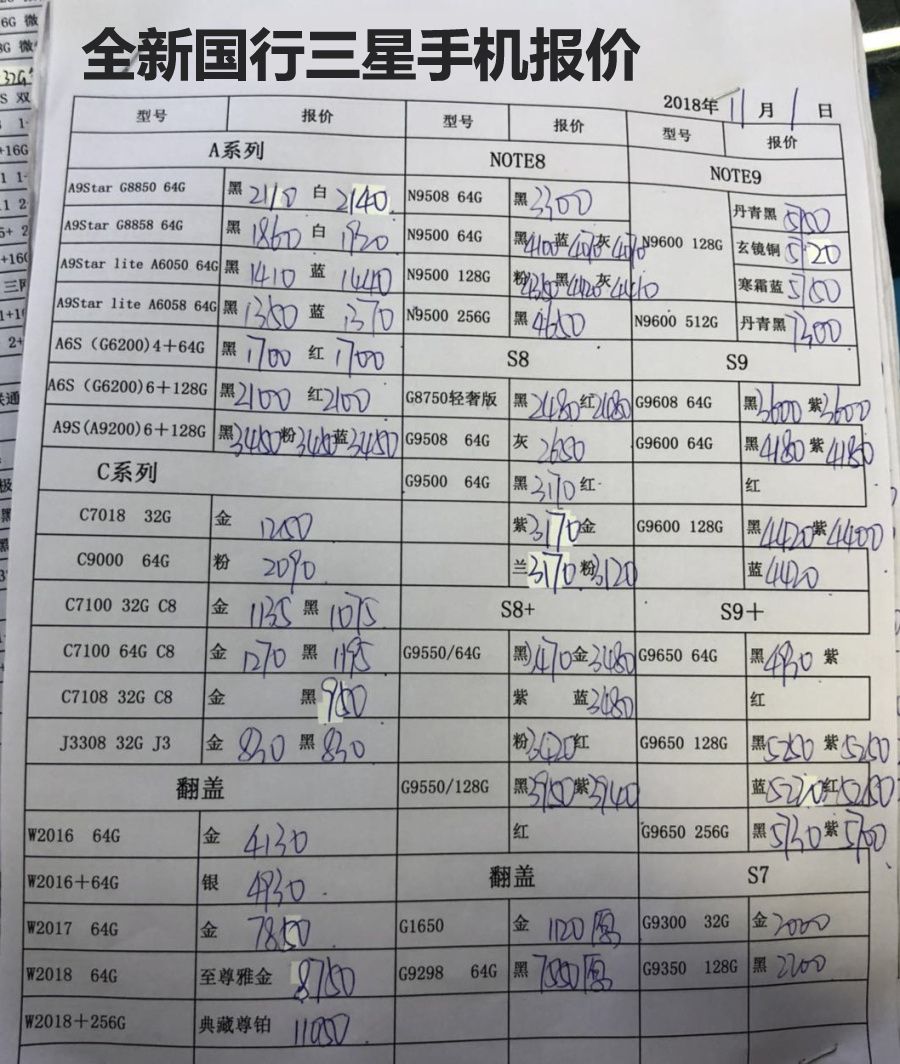 全新国行三星手机报价
2018年 11 月 1 日
型号 报价 型号 报价 型号 报价
A系列 NOTE8 NOTE9
A9Star G8850 64G 黑 2110 白 2140 N9508 64G 黑 3300 N9600 128G 丹青黑
A9Star G8858 64G 黑 1860 白 1920 N9500 64G 黑4100蓝4070灰4070 玄镜铜
A9Star lite A6050 64G 黑 1410 蓝 1440 N9500 128G 粉4350黑4420灰4410 寒霜蓝
A9Star lite A6058 64G 黑 1350 蓝 1370 N9500 256G 黑 4650 N9600 512G 丹青黑 7300
A6S (G6200)4+64G 黑 1700 红 1700 S8 S9
A6S (G6200)6+128G 黑2100 红2100 G8750轻奢版 黑 2480红2480 G9608 64G 黑3600 紫3600
A9S(A9200)6+128G 黑3450粉3450蓝3450 G9508 64G 灰 2650 G9600 64G 黑4180 紫4180
C系列 G9500 64G 黑3170 红 红
C7018 32G 金 1250 紫3170金 G9600 128G 黑4420紫4400
C9000 64G 粉 2090 兰3170粉3120 蓝4420
C7100 32G C8 金 1135 黑 1075 S8+ S9+
C7100 64G C8 金 1270 黑 1195 G9550/64G 黑3470金3480 G9650 64G 黑4930 紫
C7108 32G C8 金 黑950 紫 蓝3480 红
J3308 32G J3 金 830 黑 830 粉3420红 G9650 128G 黑5250 紫5250
翻盖 G9550/128G 黑3950紫3940 蓝5220红5250
W2016 64G 金 4130 红 G9650 256G 黑5730紫5700
W2016+64G 银 4930 翻盖 S7
W2017 64G 金 7850 G1650 金 1120原 G9300 32G 金 2000
W2018 64G 至尊雅金 8750 G9298 64G 黑 7550原 G9350 128G 黑 2200
W2018+256G 典藏尊铂 11050